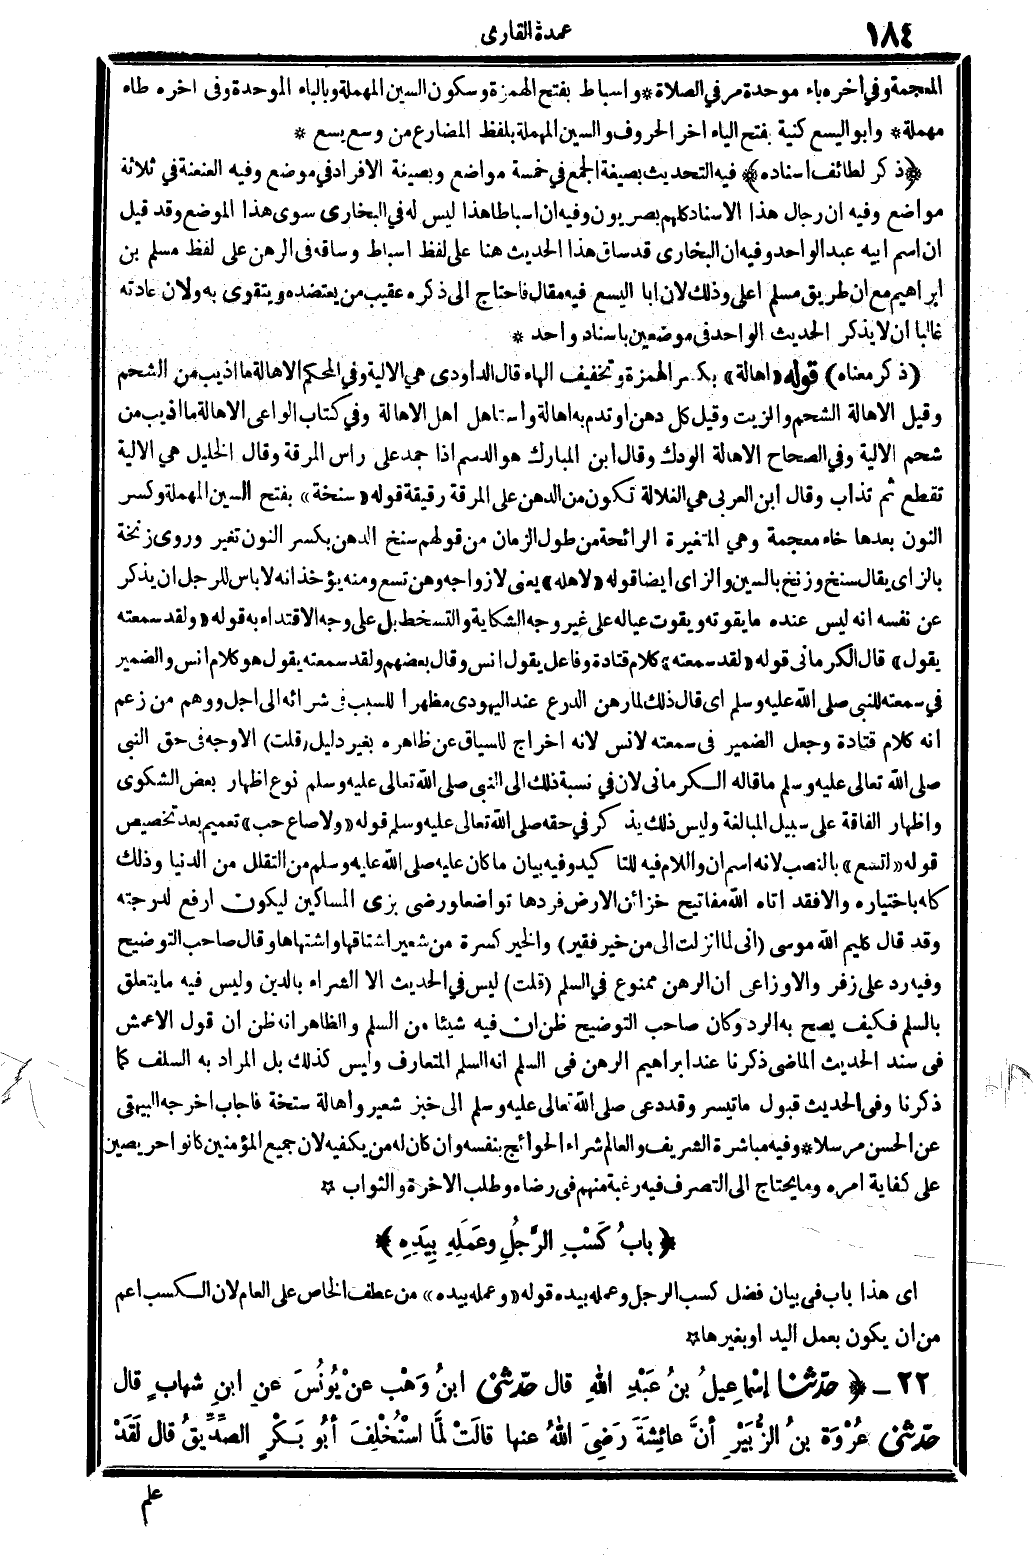 ١٨٤
عمدة القارى
المعجمة وفي آخره باء موحدة مر في الصلاة * واسباط بفتح الهمزة وسكون السين المهملة وبالباء الموحدة وفى اخره طاء
مهملة * وابو اليسع كنية بفتح الياء اخر الحروف والسين المهملة بلفظ المضارع من وسع يسع *
﴿ذكر لطائف اسناده﴾ فيه التحديث بصيغة الجمع في خمسة مواضع وبصيغة الافراد في موضع وفيه العنعنة في ثلاثة
مواضع وفيه ان رجال هذا الاسناد كلهم بصريون وفيه ان اسباطا هذا ليس له في البخارى سوى هذا الموضع وقد قيل
ان اسم ابيه عبد الواحد وفيه ان البخارى قد ساق هذا الحديث هنا على لفظ اسباط وساقه فى الرهن على لفظ مسلم بن
ابراهيم مع ان طريق مسلم اعلى وذلك لان ابا اليسع فيه مقال فاحتاج الى ذكره عقيب من يعتضده ويتقوى به ولان عادته
غالبا ان لا يذكر الحديث الواحد فى موضعين باسناد واحد *
(ذكر معناه) قوله «اهالة» بكسر الهمزة وتخفيف الهاء قال الداودى هي الالية وفي المحكم الاهالة ما اذيب من الشحم
وقيل الاهالة الشحم والزيت وقيل كل دهن اوتدم به اهالة واستاهل اهل الاهالة وفي كتاب الواعى الاهالة ما اذيب من
شحم الالية وفي الصحاح الاهالة الودك وقال ابن المبارك هو الدسم اذا جمد على راس المرقة وقال الخليل هي الالية
تقطع ثم تذاب وقال ابن العربى هي الغلالة تكون من الدهن على المرقة رقيقة قوله «سنخة» بفتح السين المهملة وكسر
النون بعدها خاء معجمة وهي المتغيرة الرائحة من طول الزمان من قولهم سنخ الدهن بكسر النون تغير وروى زنخة
بالزاى يقال سنخ وزنخ بالسين والزاى ايضا قوله «لاهله» يعنى لازواجه وهن تسع ومنه يؤخذ انه لا باس للرجل ان يذكر
عن نفسه انه ليس عنده ما يقوته ويقوت عياله على غير وجه الشكاية والتسخط بل على وجه الاقتداء به قوله «ولقد سمعته
يقول» قال الكرمانى قوله «لقد سمعته» كلام قتادة وفاعل يقول انس وقال بعضهم ولقد سمعته يقول هو كلام انس والضمير
في سمعته للنبى صلى الله عليه وسلم اى قال ذلك لما رهن الدرع عند اليهودى مظهرا للسبب في شرائه الى اجل ووهم من زعم
انه كلام قتادة وجعل الضمير فى سمعته لانس لانه اخراج للسياق عن ظاهره بغير دليل (قلت) الاوجه فى حق النبى
صلى الله تعالى عليه وسلم ما قاله الكرمانى لان في نسبة ذلك الى النبى صلى الله تعالى عليه وسلم نوع اظهار بعض الشكوى
واظهار الفاقة على سبيل المبالغة وليس ذلك يذكر في حقه صلى الله تعالى عليه وسلم قوله «ولا صاع حب» تعميم بعد تخصيص
قوله «لتسع» بالنصب لانه اسم ان واللام فيه للتاكيد وفيه بيان ما كان عليه صلى الله عليه وسلم من التقلل من الدنيا وذلك
كله باختياره والا فقد اتاه الله مفاتيح خزائن الارض فردها تواضعا ورضى بزى المساكين ليكون ارفع لدرجته
وقد قال كليم الله موسى (انى لما انزلت الى من خير فقير) والخير كسرة من شعير اشتاقها واشتهاها وقال صاحب التوضيح
وفيه رد على زفر والاوزاعى ان الرهن ممنوع في السلم (قلت) ليس في الحديث الا الشراء بالدين وليس فيه ما يتعلق
بالسلم فكيف يصح به الرد وكان صاحب التوضيح ظن ان فيه شيئا من السلم والظاهر انه ظن ان قول الاعمش
فى سند الحديث الماضى ذكرنا عند ابراهيم الرهن فى السلم انه السلم المتعارف وليس كذلك بل المراد به السلف كما
ذكرنا وفى الحديث قبول ما تيسر وقد دعى صلى الله تعالى عليه وسلم الى خبز شعير واهالة سنخة فاجاب اخرجه البيهقى
عن الحسن مرسلا * وفيه مباشرة الشريف والعالم شراء الحوائج بنفسه وان كان له من يكفيه لان جميع المؤمنين كانوا حريصين
على كفاية امره وما يحتاج الى التصرف فيه رغبة منهم فى رضاه وطلب الاخرة والثواب *
﴿باب كَسْبِ الرَّجُلِ وعَمَلِهِ بِيَدِهِ﴾
اى هذا باب فى بيان فضل كسب الرجل وعمله بيده قوله «وعمله بيده» من عطف الخاص على العام لان الكسب اعم
من ان يكون بعمل اليد او بغيرها *
٢٢ ـ ﴿ حدّثنا إسْماعِيلُ بنُ عَبْدِ اللهِ قال حدّثنى ابنُ وَهْب عنْ يُونُسَ عنِ ابنِ شهابٍ قال
حدّثنى عُرْوَة بنُ الزُّبَيْرِ أنَّ عائِشَةَ رَضِىَ اللهُ عنها قالَتْ لمَّا اسْتُخْلِفَ أبُو بَكْرٍ الصِّدِّيقُ قال لَقَدْ
علم